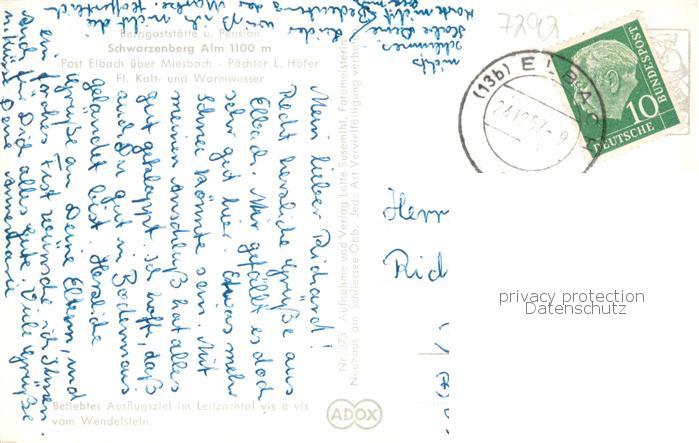 Berggaststätte u. Pension
Schwarzenberg Alm 1100 m
Post Elbach über Miesbach - Pächter L. Höfer
Fl. Kalt- und Warmwasser
7292
(13b) ELBAC
24.10.57.-9
10
DEUTSCHE
BUNDESPOST
Mein lieber Richard!
Recht herzliche Grüße aus
Elbach. Mir gefällt es doch
sehr gut hier. Etwas mehr
Schnee könnte sein. Mit
meinem Anschluß hat alles
gut geklappt. Ich hoffe, daß
auch Du gut in Bodenmais
gelandet bist. Herzliche
Grüße an Deine Eltern, und
ein frohes Fest wünsche ich Ihnen
und Dir alles gute. Viele Grüße
Deine Annemarie
Leider weiß ich nicht die
Bedeutung der
nichts
schlimmes
Nr. 173 Aufnahme und Verlag Lotte Susemihl, Fotomeisterin
Neuhaus am Schliersee Obb. Jede Art Vervielfältigung verboten
Herrn
Rich
privacy protection
Datenschutz
Beliebtes Ausflugsziel im Leitzachtal vis à vis
vom Wendelstein.
ADOX